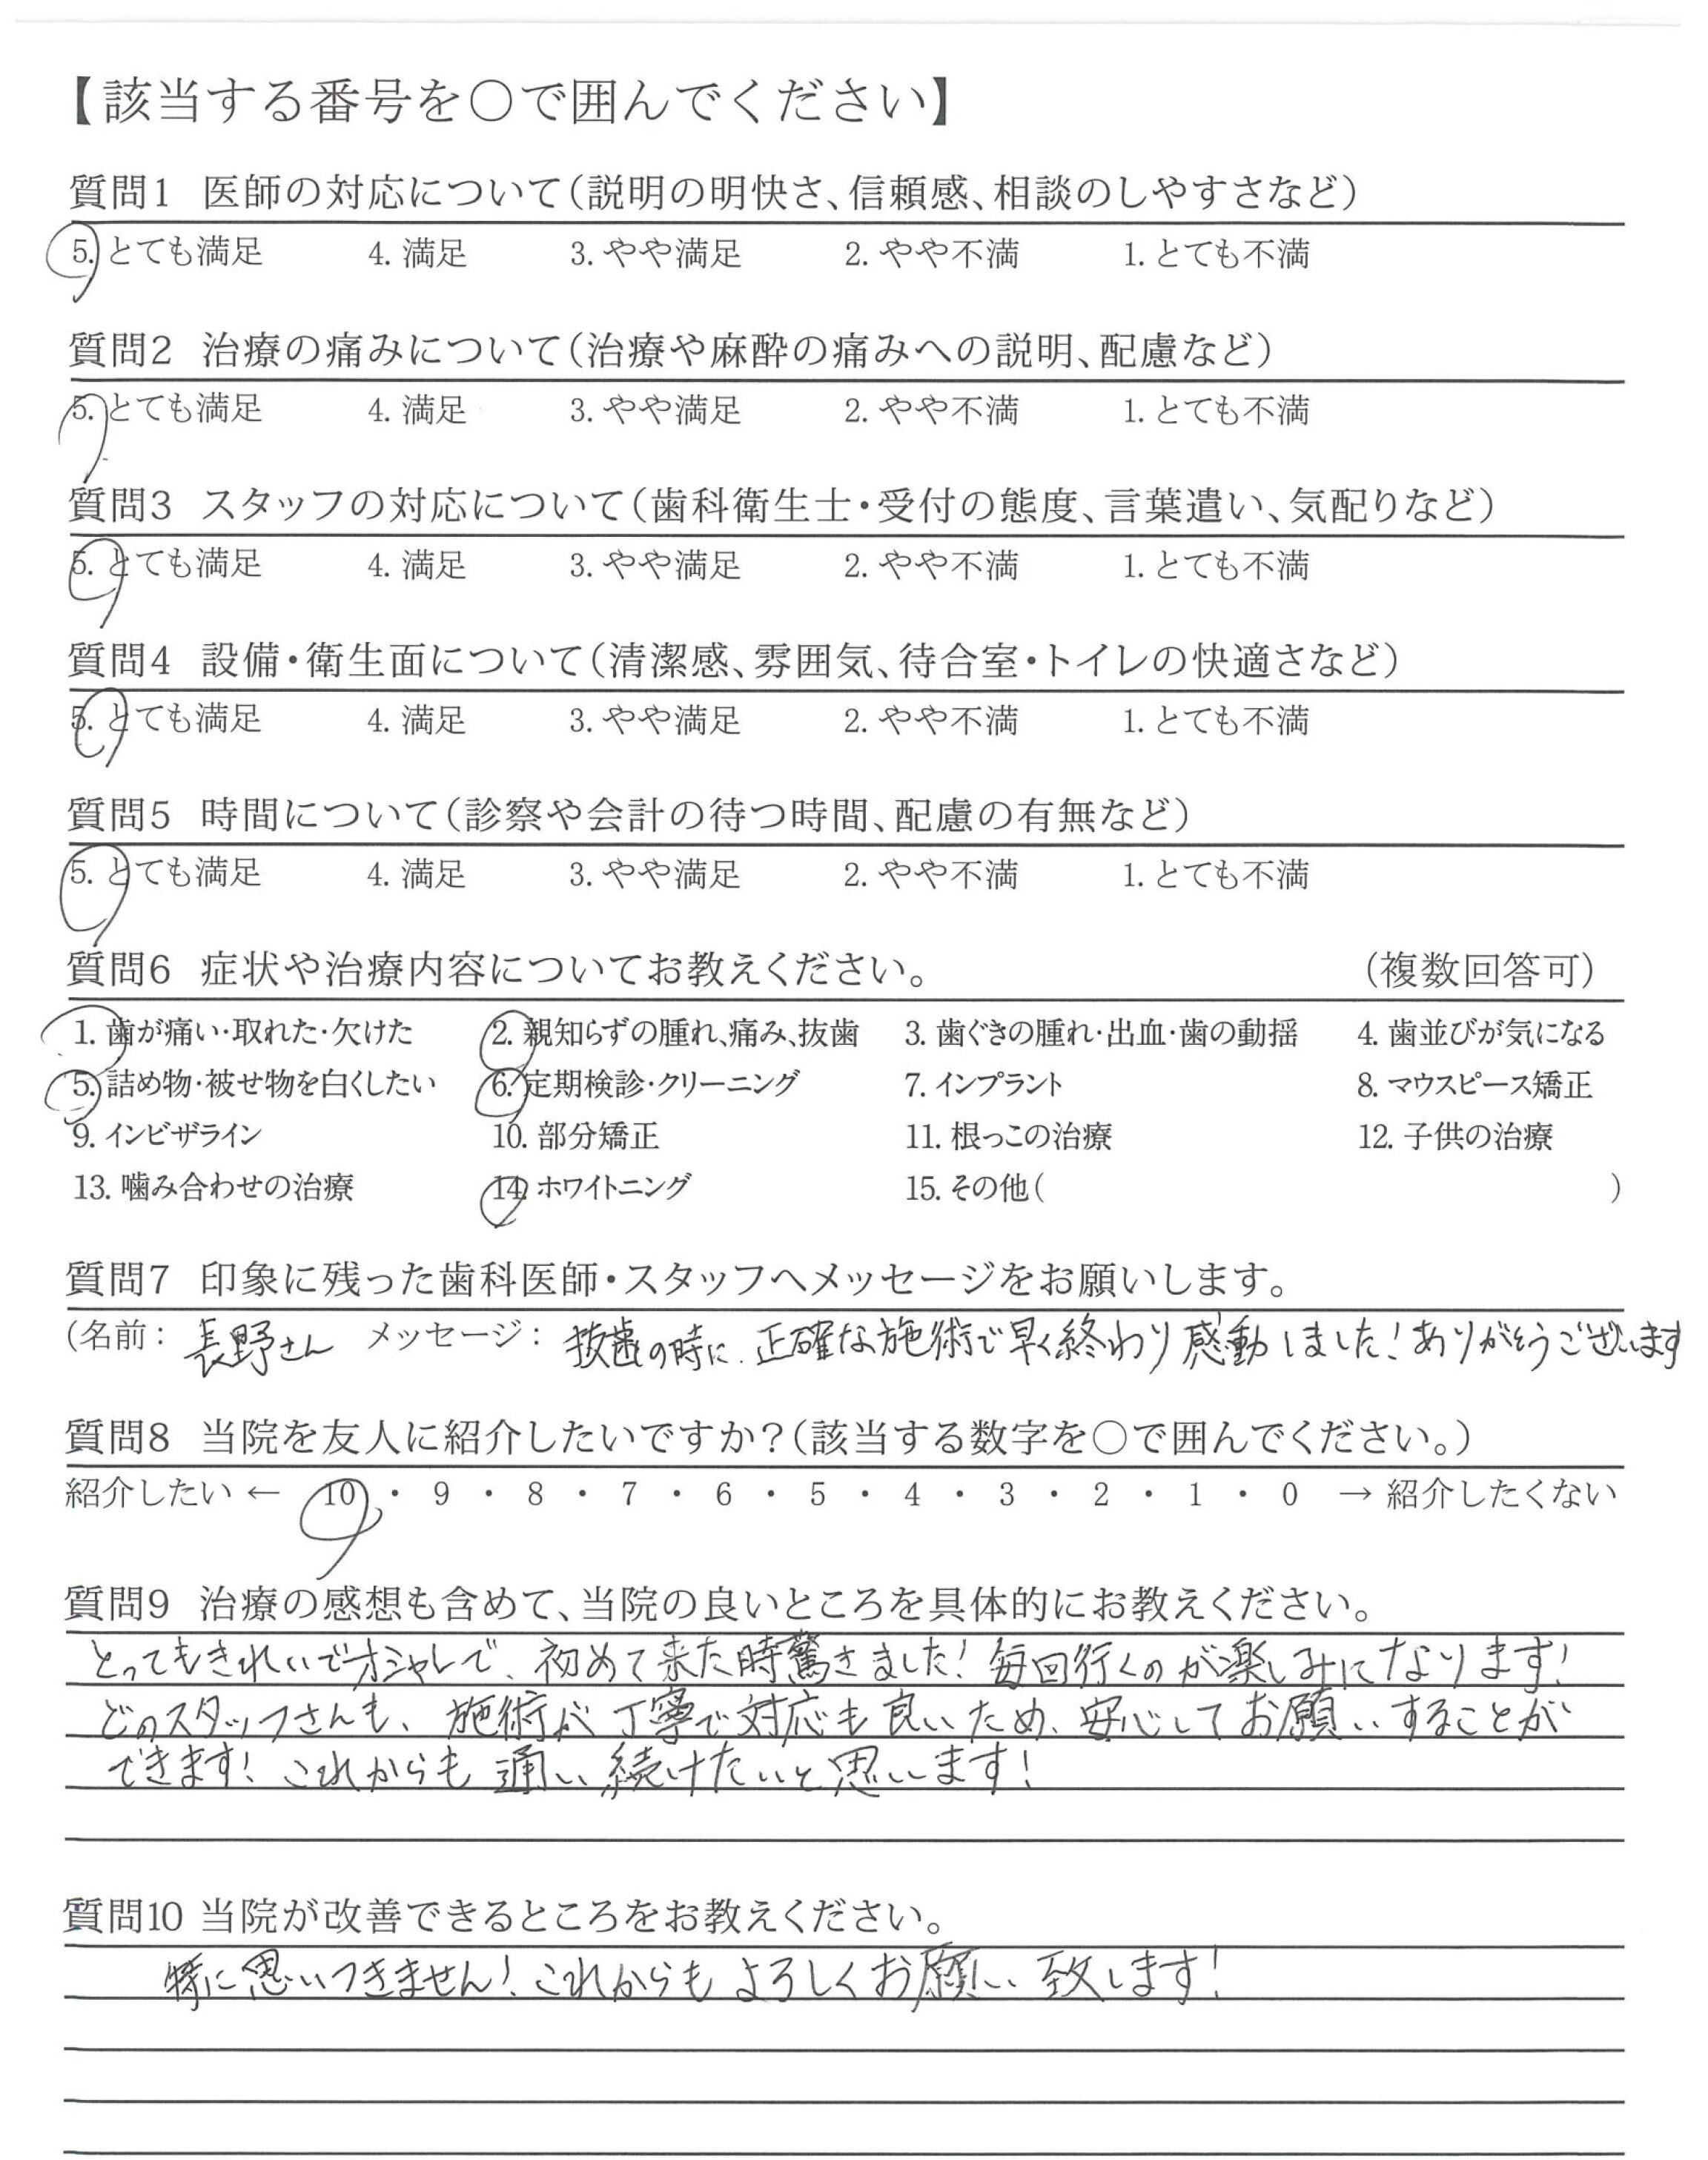 【該当する番号を○で囲んでください】
質問1 医師の対応について(説明の明快さ、信頼感、相談のしやすさなど)
5. とても満足 4. 満足 3. やや満足 2. やや不満 1. とても不満
質問2 治療の痛みについて(治療や麻酔の痛みへの説明、配慮など)
5. とても満足 4. 満足 3. やや満足 2. やや不満 1. とても不満
質問3 スタッフの対応について(歯科衛生士・受付の態度、言葉遣い、気配りなど)
5. とても満足 4. 満足 3. やや満足 2. やや不満 1. とても不満
質問4 設備・衛生面について(清潔感、雰囲気、待合室・トイレの快適さなど)
5. とても満足 4. 満足 3. やや満足 2. やや不満 1. とても不満
質問5 時間について(診察や会計の待つ時間、配慮の有無など)
5. とても満足 4. 満足 3. やや満足 2. やや不満 1. とても不満
質問6 症状や治療内容についてお教えください。 (複数回答可)
1. 歯が痛い・取れた・欠けた 2. 親知らずの腫れ、痛み、抜歯 3. 歯ぐきの腫れ・出血・歯の動揺 4. 歯並びが気になる
5. 詰め物・被せ物を白くしたい 6. 定期検診・クリーニング 7. インプラント 8. マウスピース矯正
9. インビザライン 10. 部分矯正 11. 根っこの治療 12. 子供の治療
13. 噛み合わせの治療 14. ホワイトニング 15. その他( )
質問7 印象に残った歯科医師・スタッフへメッセージをお願いします。
(名前: 長野さん メッセージ: 抜歯の時に、正確な施術で早く終わり感動しました!ありがとうございます
質問8 当院を友人に紹介したいですか?(該当する数字を○で囲んでください。)
紹介したい ← 10 ・ 9 ・ 8 ・ 7 ・ 6 ・ 5 ・ 4 ・ 3 ・ 2 ・ 1 ・ 0 → 紹介したくない
質問9 治療の感想も含めて、当院の良いところを具体的にお教えください。
とってもきれいでオシャレで、初めて来た時驚きました!毎回行くのが楽しみになります!
どのスタッフさんも、施術が丁寧で対応も良いため、安心してお願いすることが
できます!これからも通い続けたいと思います!
質問10 当院が改善できるところをお教えください。
特に思いつきません!これからもよろしくお願い致します!